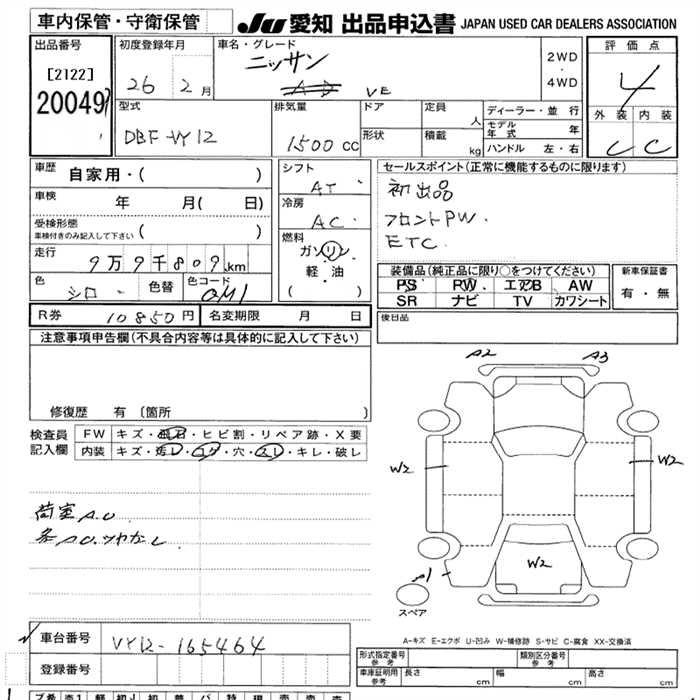 車内保管・守衛保管
JU 愛知 出品申込書 JAPAN USED CAR DEALERS ASSOCIATION
出品番号 初度登録年月 車名・グレード 評価点
[2122] 26 2月 ニッサン 2WD・4WD 4
20049 VE
型式 排気量 ドア 定員 人 ディーラー・並行 外装 内装
DBF-VY12 1500cc 形状 積載 kg モデル年式 年 C C
ハンドル 左・右
車歴 自家用・( ) シフト AT セールスポイント(正常に機能するものに限ります)
車検 年 月( 日) 冷房 AC 初出品
受検形態 ( ) 燃料 フロントPW.
車検付きのみ記入して下さい ガソリン ETC
走行 9万9千809km 軽・油
色 シロ 色替 色コード QM1 ( )
装備品(純正品に限り○をつけてください) 新車保証書
PS PW エアB AW 有・無
SR ナビ TV カワシート
R券 10850円 名変期限 月 日 後日品
注意事項申告欄(不具合内容等は具体的に記入して下さい)
修復歴 有 〔箇所 〕
検査員 FW キズ・飛石・ヒビ割・リペア跡・X要
記入欄 内装 キズ・汚レ・コゲ・穴・スレ・キレ・破レ
A2 A3
W2 W2
荷室A.U
W2
スペア
A-キズ E-エクボ U-凹み W-補修跡 S-サビ C-腐食 XX-交換済
車台番号 VY12-165464
登録番号
形式指定番号 参考 類別区分番号 参考
車庫証明用 参考 長さ cm 幅 cm 高さ cm